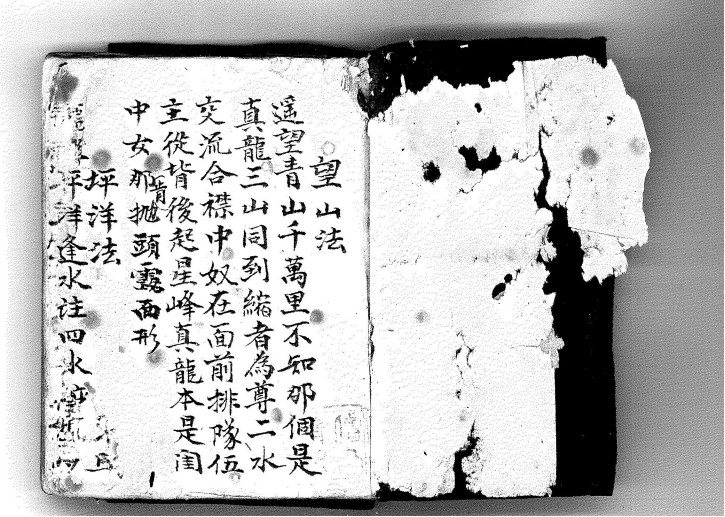 望山法
遥望青山千萬里不知那個是
真龍三山同到縮者為尊二水
交流合襟中奴在面前排隊伍
主從背後起星峰真龍本是閨
中女那肯抛頭露面形
坪洋法
坪洋逢水註四水